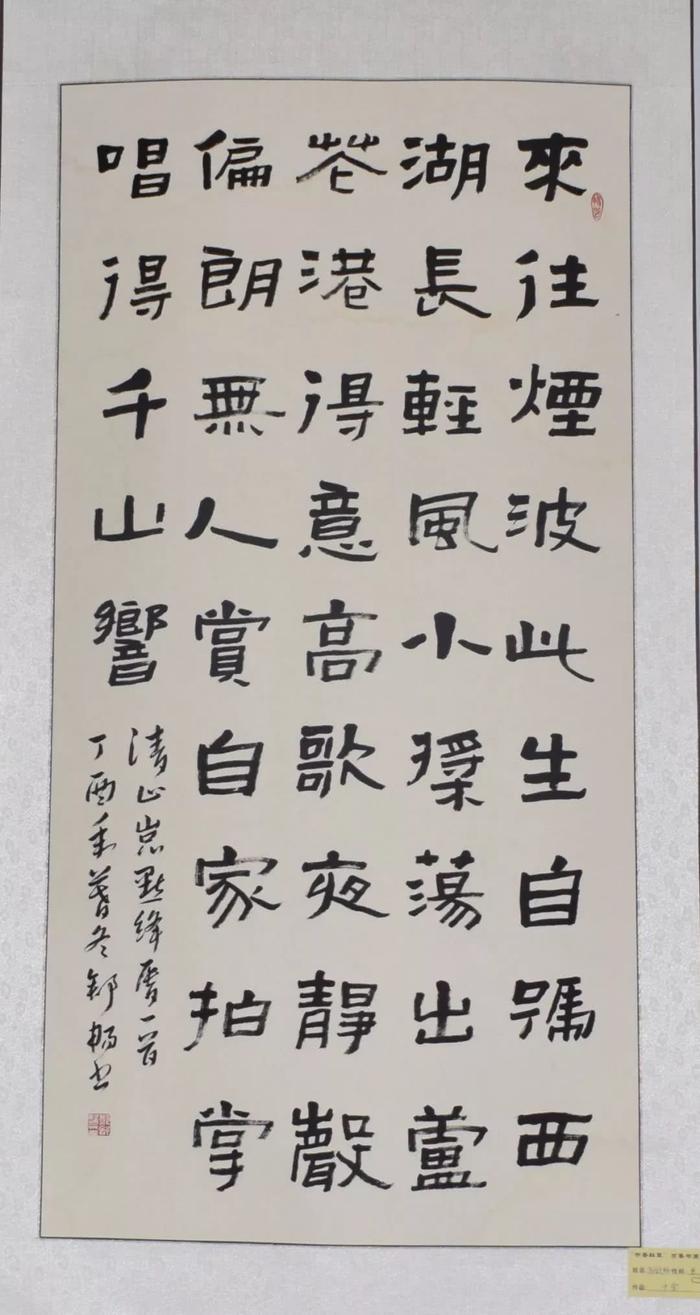 來往煙波此生自號西
湖長輕風小槳蕩出蘆
花港得意高歌夜靜聲
偏朗無人賞自家拍掌
唱得千山響
清正嵓點絳唇一首
丁酉年暮冬鄒暢書